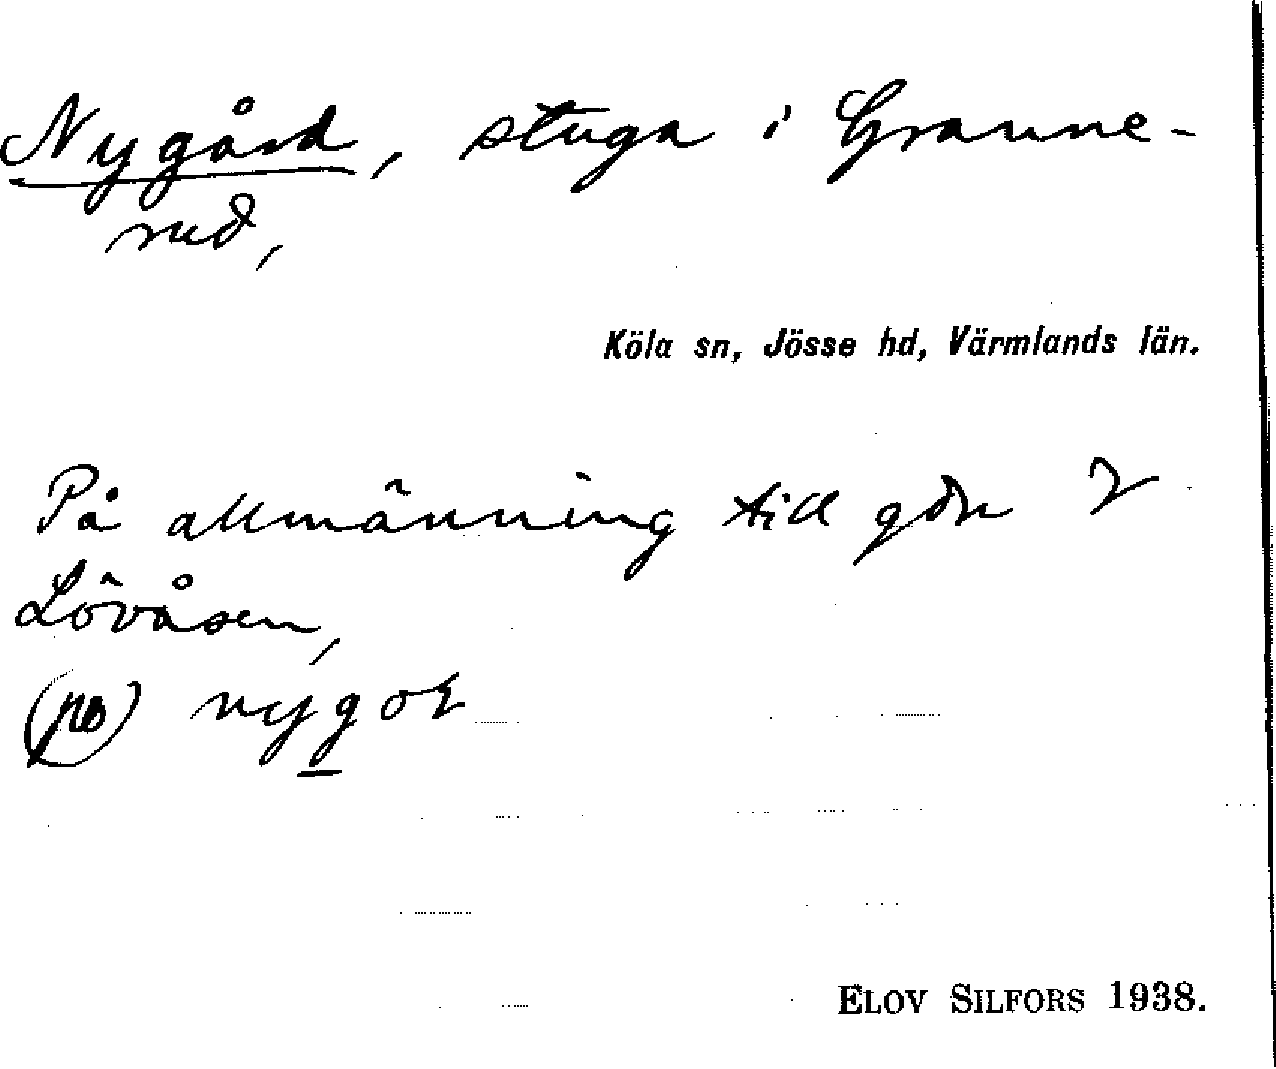 Nygård, stuga i Granne-
rud,
Köla sn, Jösse hd, Värmlands län.
På allmänning till gdn
Lövåsen,
(på) nygoɫ
ELOV SILFORS 1938.